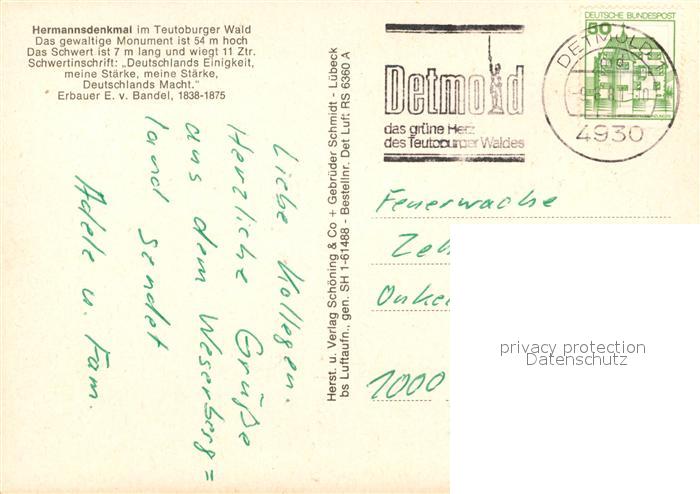 Hermannsdenkmal im Teutoburger Wald
Das gewaltige Monument ist 54 m hoch
Das Schwert ist 7 m lang und wiegt 11 Ztr.
Schwertinschrift: „Deutschlands Einigkeit,
meine Stärke, meine Stärke,
Deutschlands Macht."
Erbauer E. v. Bandel, 1838-1875
Liebe Kollegen.
Herzliche Grüße
aus dem Weserberg=
land sendet
Adele u. Fam.
Herst. u. Verlag Schöning & Co + Gebrüder Schmidt - Lübeck
bs Luftaufn., gen. SH 1-61488 - Bestellnr. Det Luft RS 6360 A
Detmold
das grüne Herz
des Teutoburger Waldes
DEUTSCHE BUNDESPOST
50
DETMOLD
4930
Feuerwache
Onkel
1000
privacy protection
Datenschutz